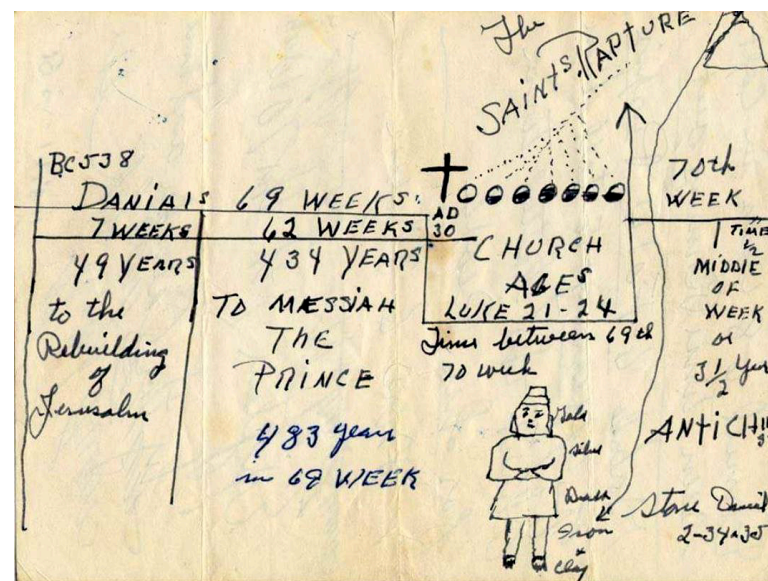 The
SAINTS RAPTURE
BC538
DANIALS 69 WEEKS
7 WEEKS
62 WEEKS
AD
30
49 YEARS
434 YEARS
to the
Rebuilding
of
Jerusalem
TO MAESSIAH
THE
PRINCE
483 years
in 69 WEEK
CHURCH
AGES
LUKE 21-24
Time between 69th
70 week
70th
WEEK
1 TIME
1/2
MIDDLE
OF
WEEK
or
3 1/2 Year
ANTICH
Gold
silver
Brass
Iron
&
clay
Stone Daniel
2-34+35